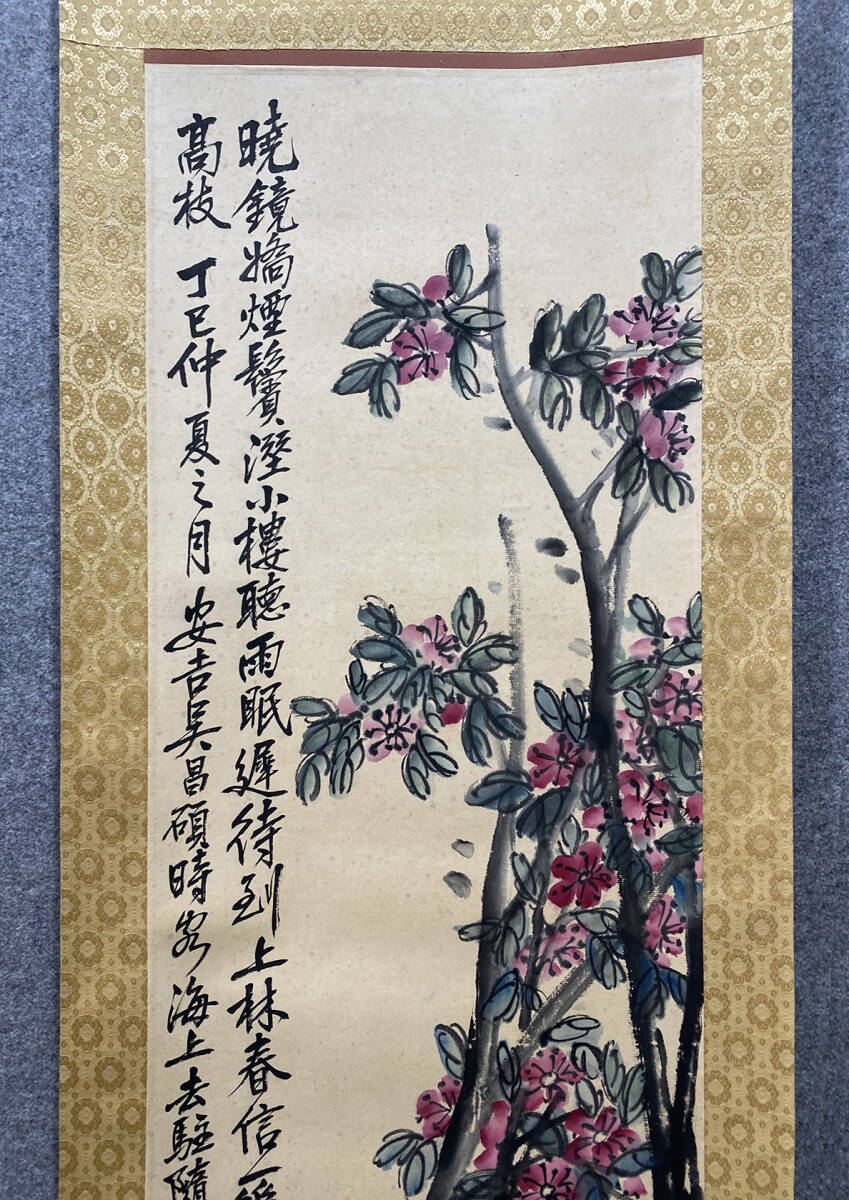 曉鏡嬌煙鬢溼小樓聽雨眠遲待到上林春信一
高枝 丁巳仲夏之月安吉吳昌碩時客海上去駐隨